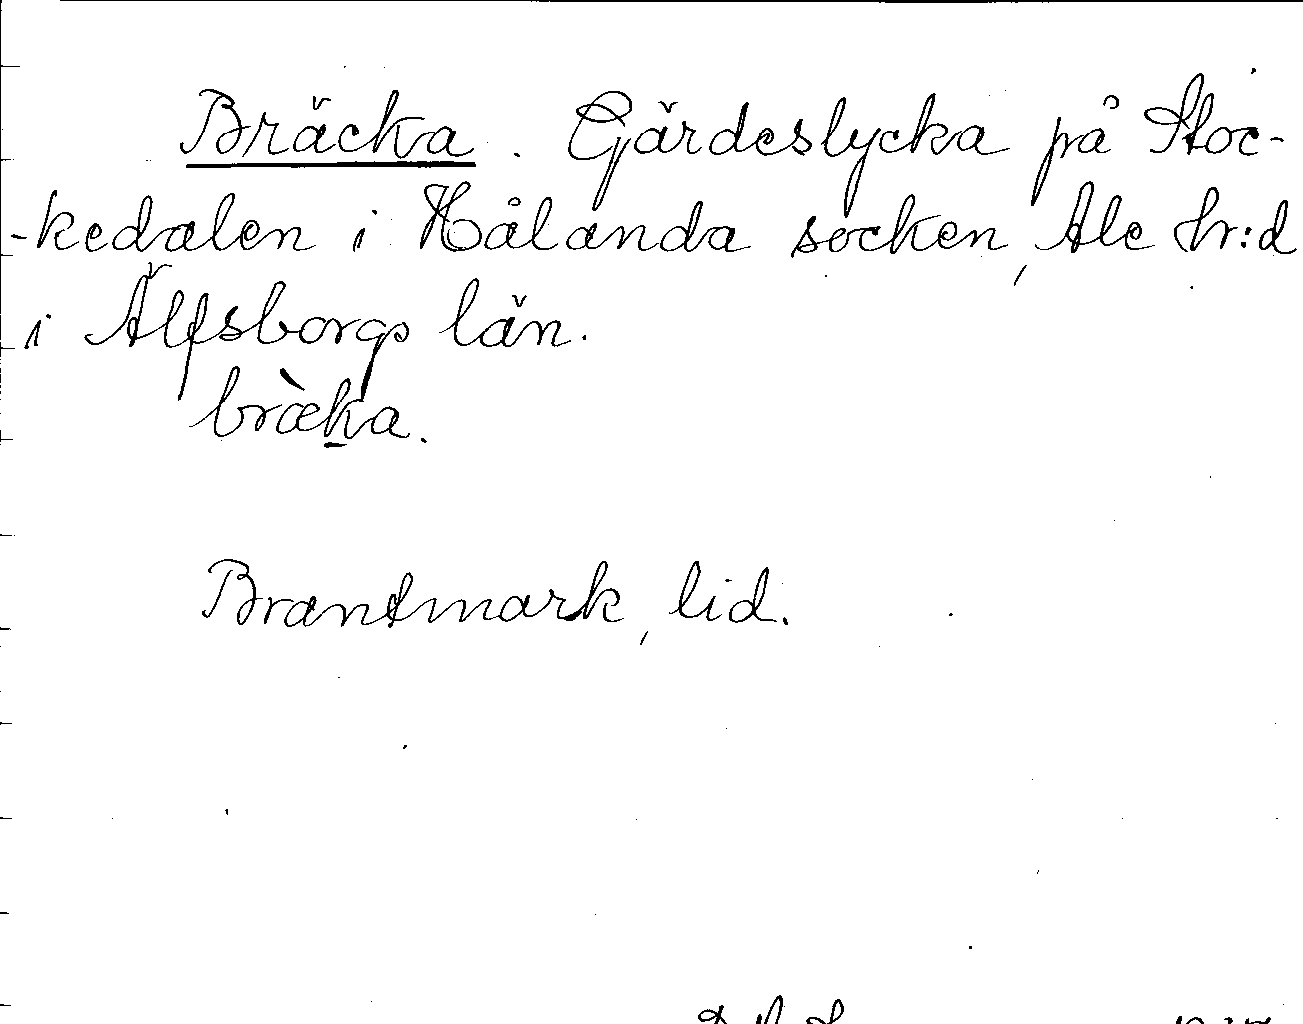 Bräcka. Gärdeslycka på Stoc-
-kedalen i Hålanda socken, Ale hr:d
i Älfsborgs län.
bræ̀k̲a.
Brantmark, lid.